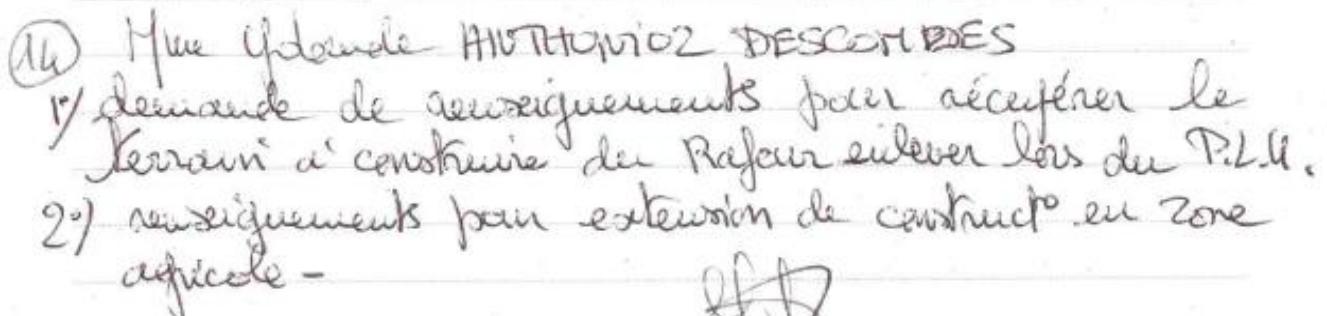 (14) Mme Yolande ANTHONIOZ DESCOMBES
1°/ demande de renseignements pour récupérer le
terrain à construire du Rafour enlever lors du P.L.U.
2°) renseignements pour extension de construct° en zone
agricole -